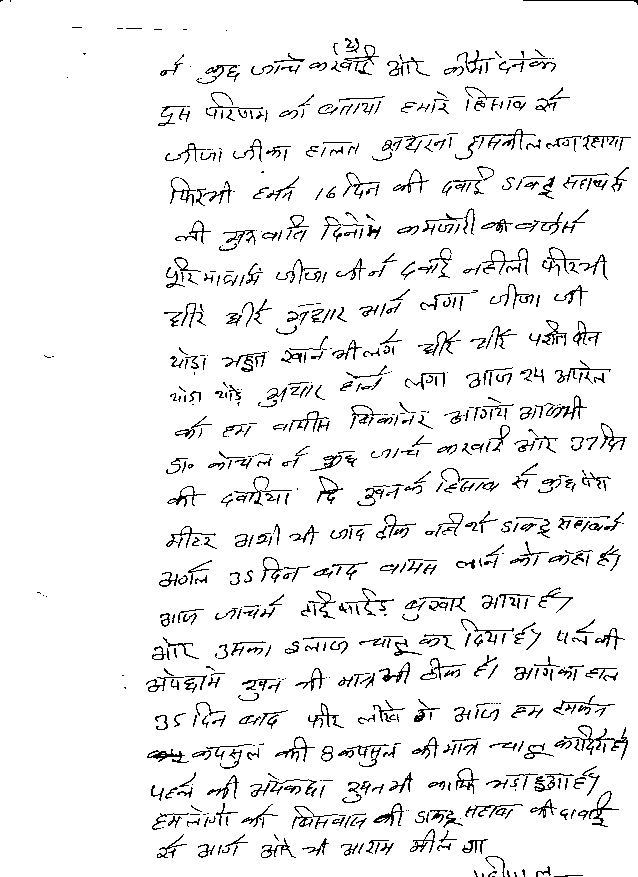 (2)
ने कुछ जांचे करवाई और कीमो देने के
दुस परिणाम को बताया हमारे हिसाब से
जीजा जी का हालत सुधरना मुसकील लग रहाथा
फिरभी हमने 16 दिन की दवाई डाक्टर साहब से
ली सुरुवाति दिनोमे कमजोरी की वजेसे
पुरि मात्रामे जीजा जी ने दवाई नहीली फीरभी
धीरे धीरे सुधार आने लगा जीजा जी
थोडा बहुत खाने भीलगे धीरे धीरे प्रतीदीन
थोडा थोडे सुधार होने लगा आज 24 अपरेल
को हम वापीस बिकानेर आगये आजभी
डा. कोचल ने कुछ जांचे करवाई और 37 दिन
की दवाईया दि खुनके हिसाब से कुछ पेरा
मीटर अभी भी जादा ठीक नहीथे डाक्टर साहबने
अगले 35 दिन बाद वापस लाने को कहा है।
आज जाचमे टाईफाईड बुखार आया है।
और उसका इलाज चालु कर दिया है। पहले की
अपेछामे खुन की मात्रा भी ठीक है। आगेका हाल
35 दिन बाद फीर लीखे गे आज हम
कपसुल की 8 कपसुल की मात्रा चालु करदिये है।
पहले की अपेकदा खुन भी काफि बडा हुआ है।
हम लोगो को बिसवास की डाक्टर साहब की दावाई
से आगे और भी आराम मीले गा